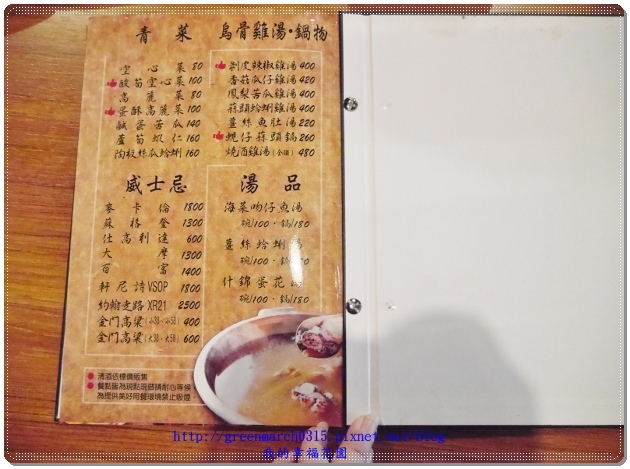 青菜
空心菜 80
酸筍空心菜 100
高麗菜 80
蛋酥高麗菜 100
鹹蛋苦瓜 140
蘆筍蝦仁 160
陶板絲瓜蛤蜊 160
烏骨雞湯·鍋物
剝皮辣椒雞湯 400
香菇瓜仔雞湯 420
鳳梨苦瓜雞湯 400
蒜頭蛤蜊雞湯 400
薑絲魚肚湯 220
蜆仔蒜頭鍋 260
燒酒雞湯(全雞) 480
威士忌
麥卡倫 1800
蘇格登 1300
仕高利達 600
大摩 1300
百富 1400
軒尼詩VSOP 1800
約翰走路XR21 2500
金門高粱(小38·小58) 400
金門高粱(大38·大58) 600
湯品
海菜吻仔魚湯
碗/100·鍋/180
薑絲蛤蜊湯
碗/100·鍋/180
什錦蛋花湯
碗/100·鍋/180
清酒依標價販售
餐點皆為現點現做請耐心等候
為提供美好用餐環境禁止吸煙
http://greenmarch0315.pixnet.net/blog
我的幸福花園